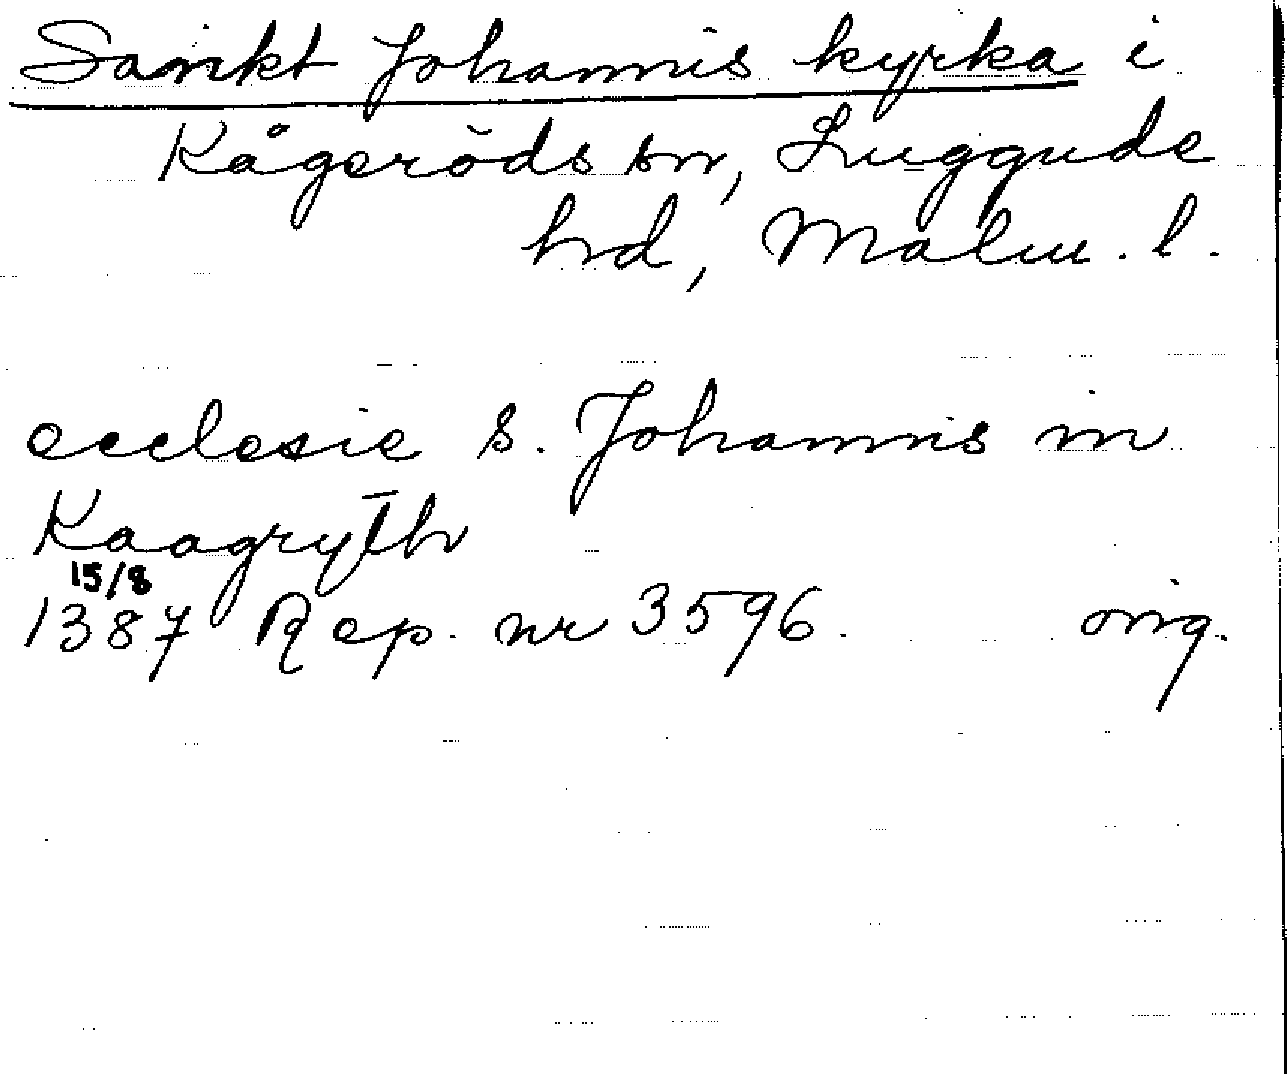 Sankt Johannis kyrka i
Kågeröds sn, Luggude
hd, Malm. l.
ecclesie s. Johannis in
Kaagryth
15/8
1387 Rep. nr 3596. orig.